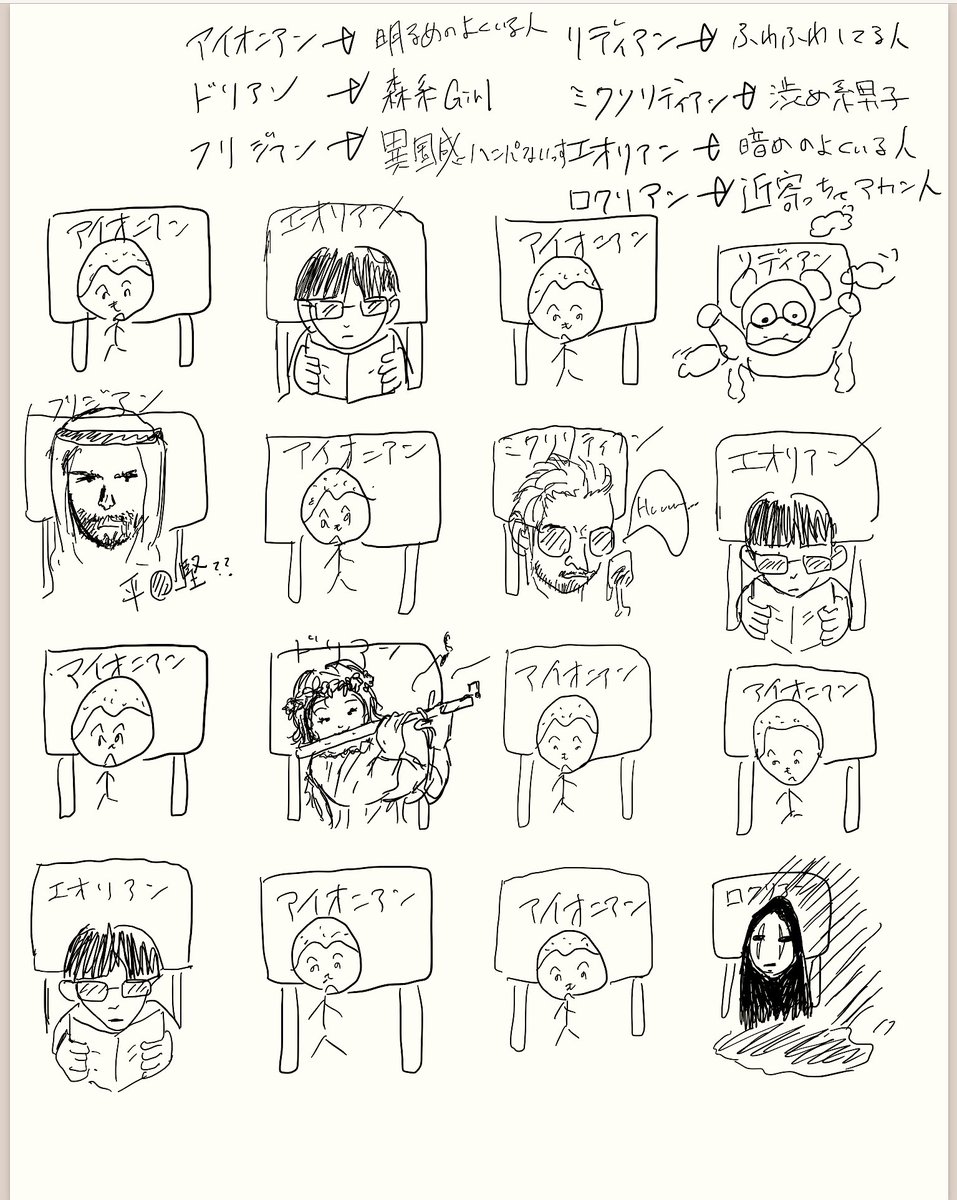 アイオニアン→明るめのよくいる人
リディアン→ふわふわしてる人
ドリアン→森系Girl
ミクソリディアン→渋め系男子
フリジアン→異国感ハンパないっす
エオリアン→暗めのよくいる人
ロクリアン→近寄っちゃアカン人
アイオニアン
エオリアン
アイオニアン
リディアン
フリジアン
アイオニアン
ミクソリディアン
エオリアン
平●堅??
アイオニアン
ドリアン
アイオニアン
アイオニアン
エオリアン
アイオニアン
アイオニアン
ロクリアン